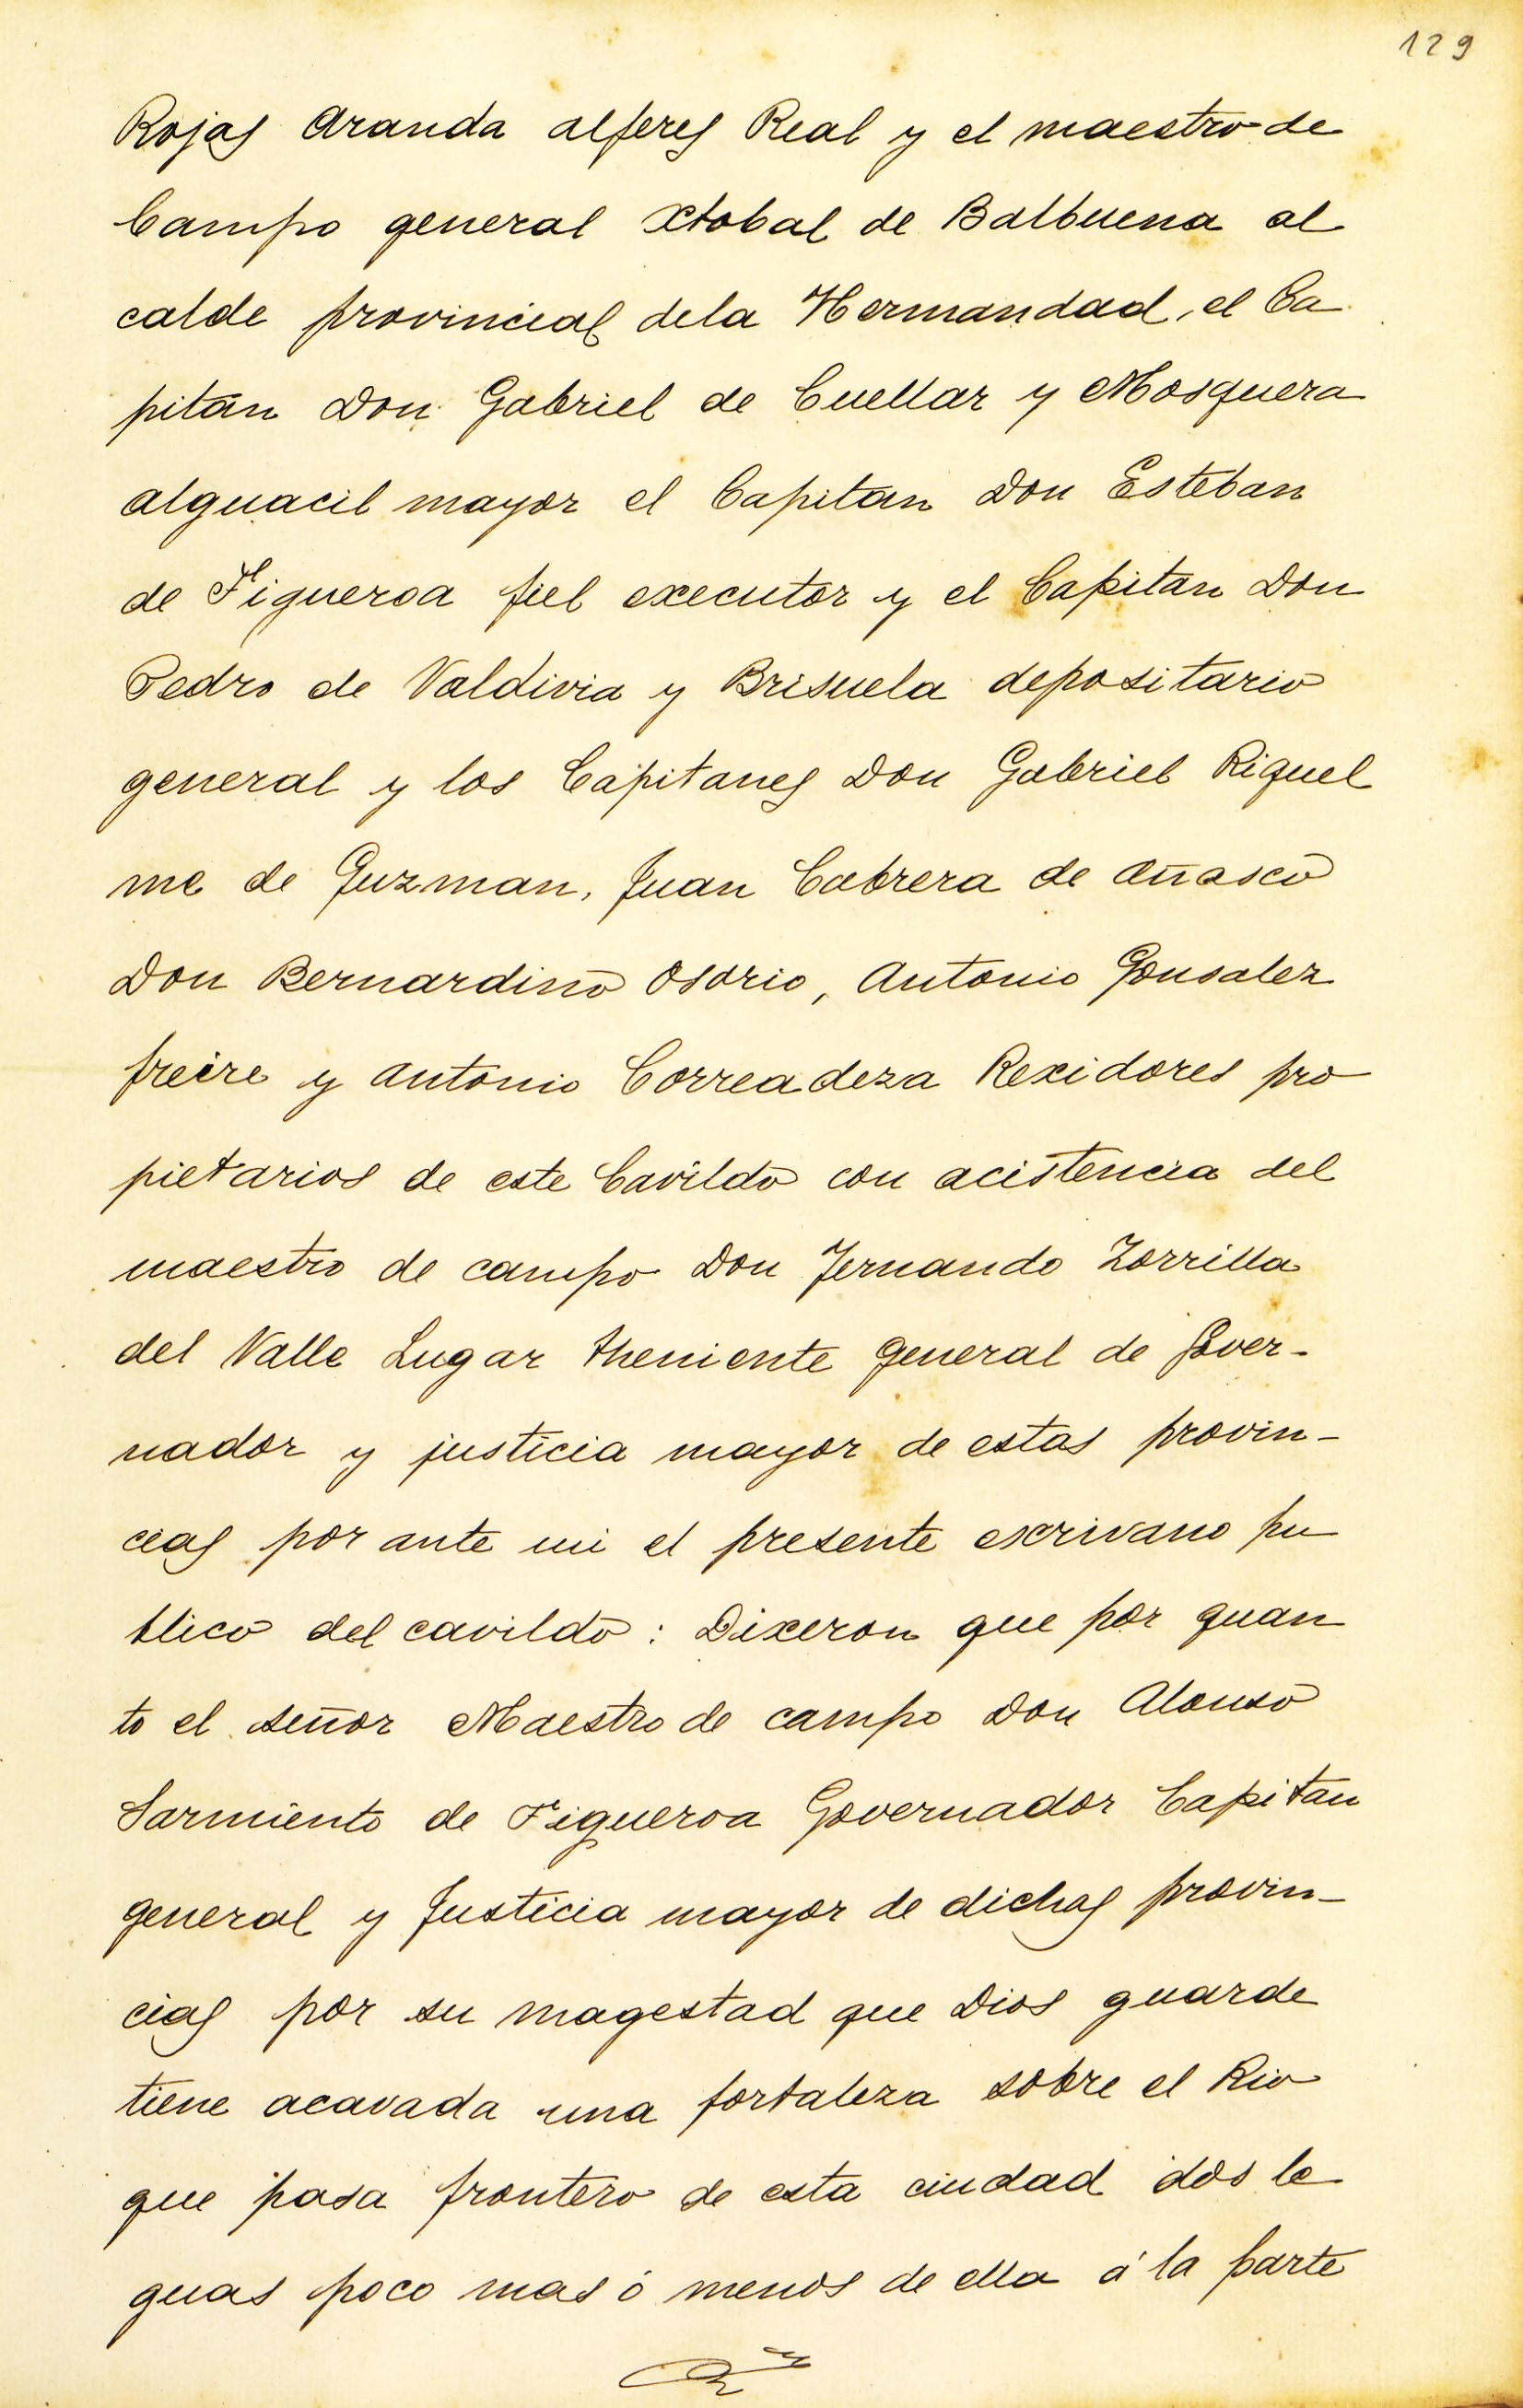 129
Rojas Aranda alferes Real y el maestro de
Campo general Xtobal de Balbuena al
calde provincial dela Hermandad, el Ca
pitan Don Gabriel de Cuellar y Mosquera
alguacil mayor el Capitan Don Esteban
de Figueroa fiel executor y el Capitan Don
Pedro de Valdivia y Brisuela depositario
general y los Capitanes Don Gabriel Riquel
me de Guzman, Juan Cabrera de Añasco
Don Bernardino Osorio, Antonio Gonsalez
freire y Antonio Correa deza Rexidores pro
pietarios de este Cavildo con acistencia del
maestro de campo Don Fernando Zorrilla
del Valle Lugar theniente general de Gover-
nador y justicia mayor de estas provin-
cias por ante mi el presente escrivano pu
blico del cavildo : Dixeron que por quan
to el señor Maestro de campo Don Alonso
Sarmiento de Figueroa Governador Capitan
general y Justicia mayor de dichas provin-
cias por su magestad que Dios guarde
tiene acavada una fortaleza sobre el Rio
que pasa frontero de esta ciudad dos le
guas poco mas ó menos de ella á la parte